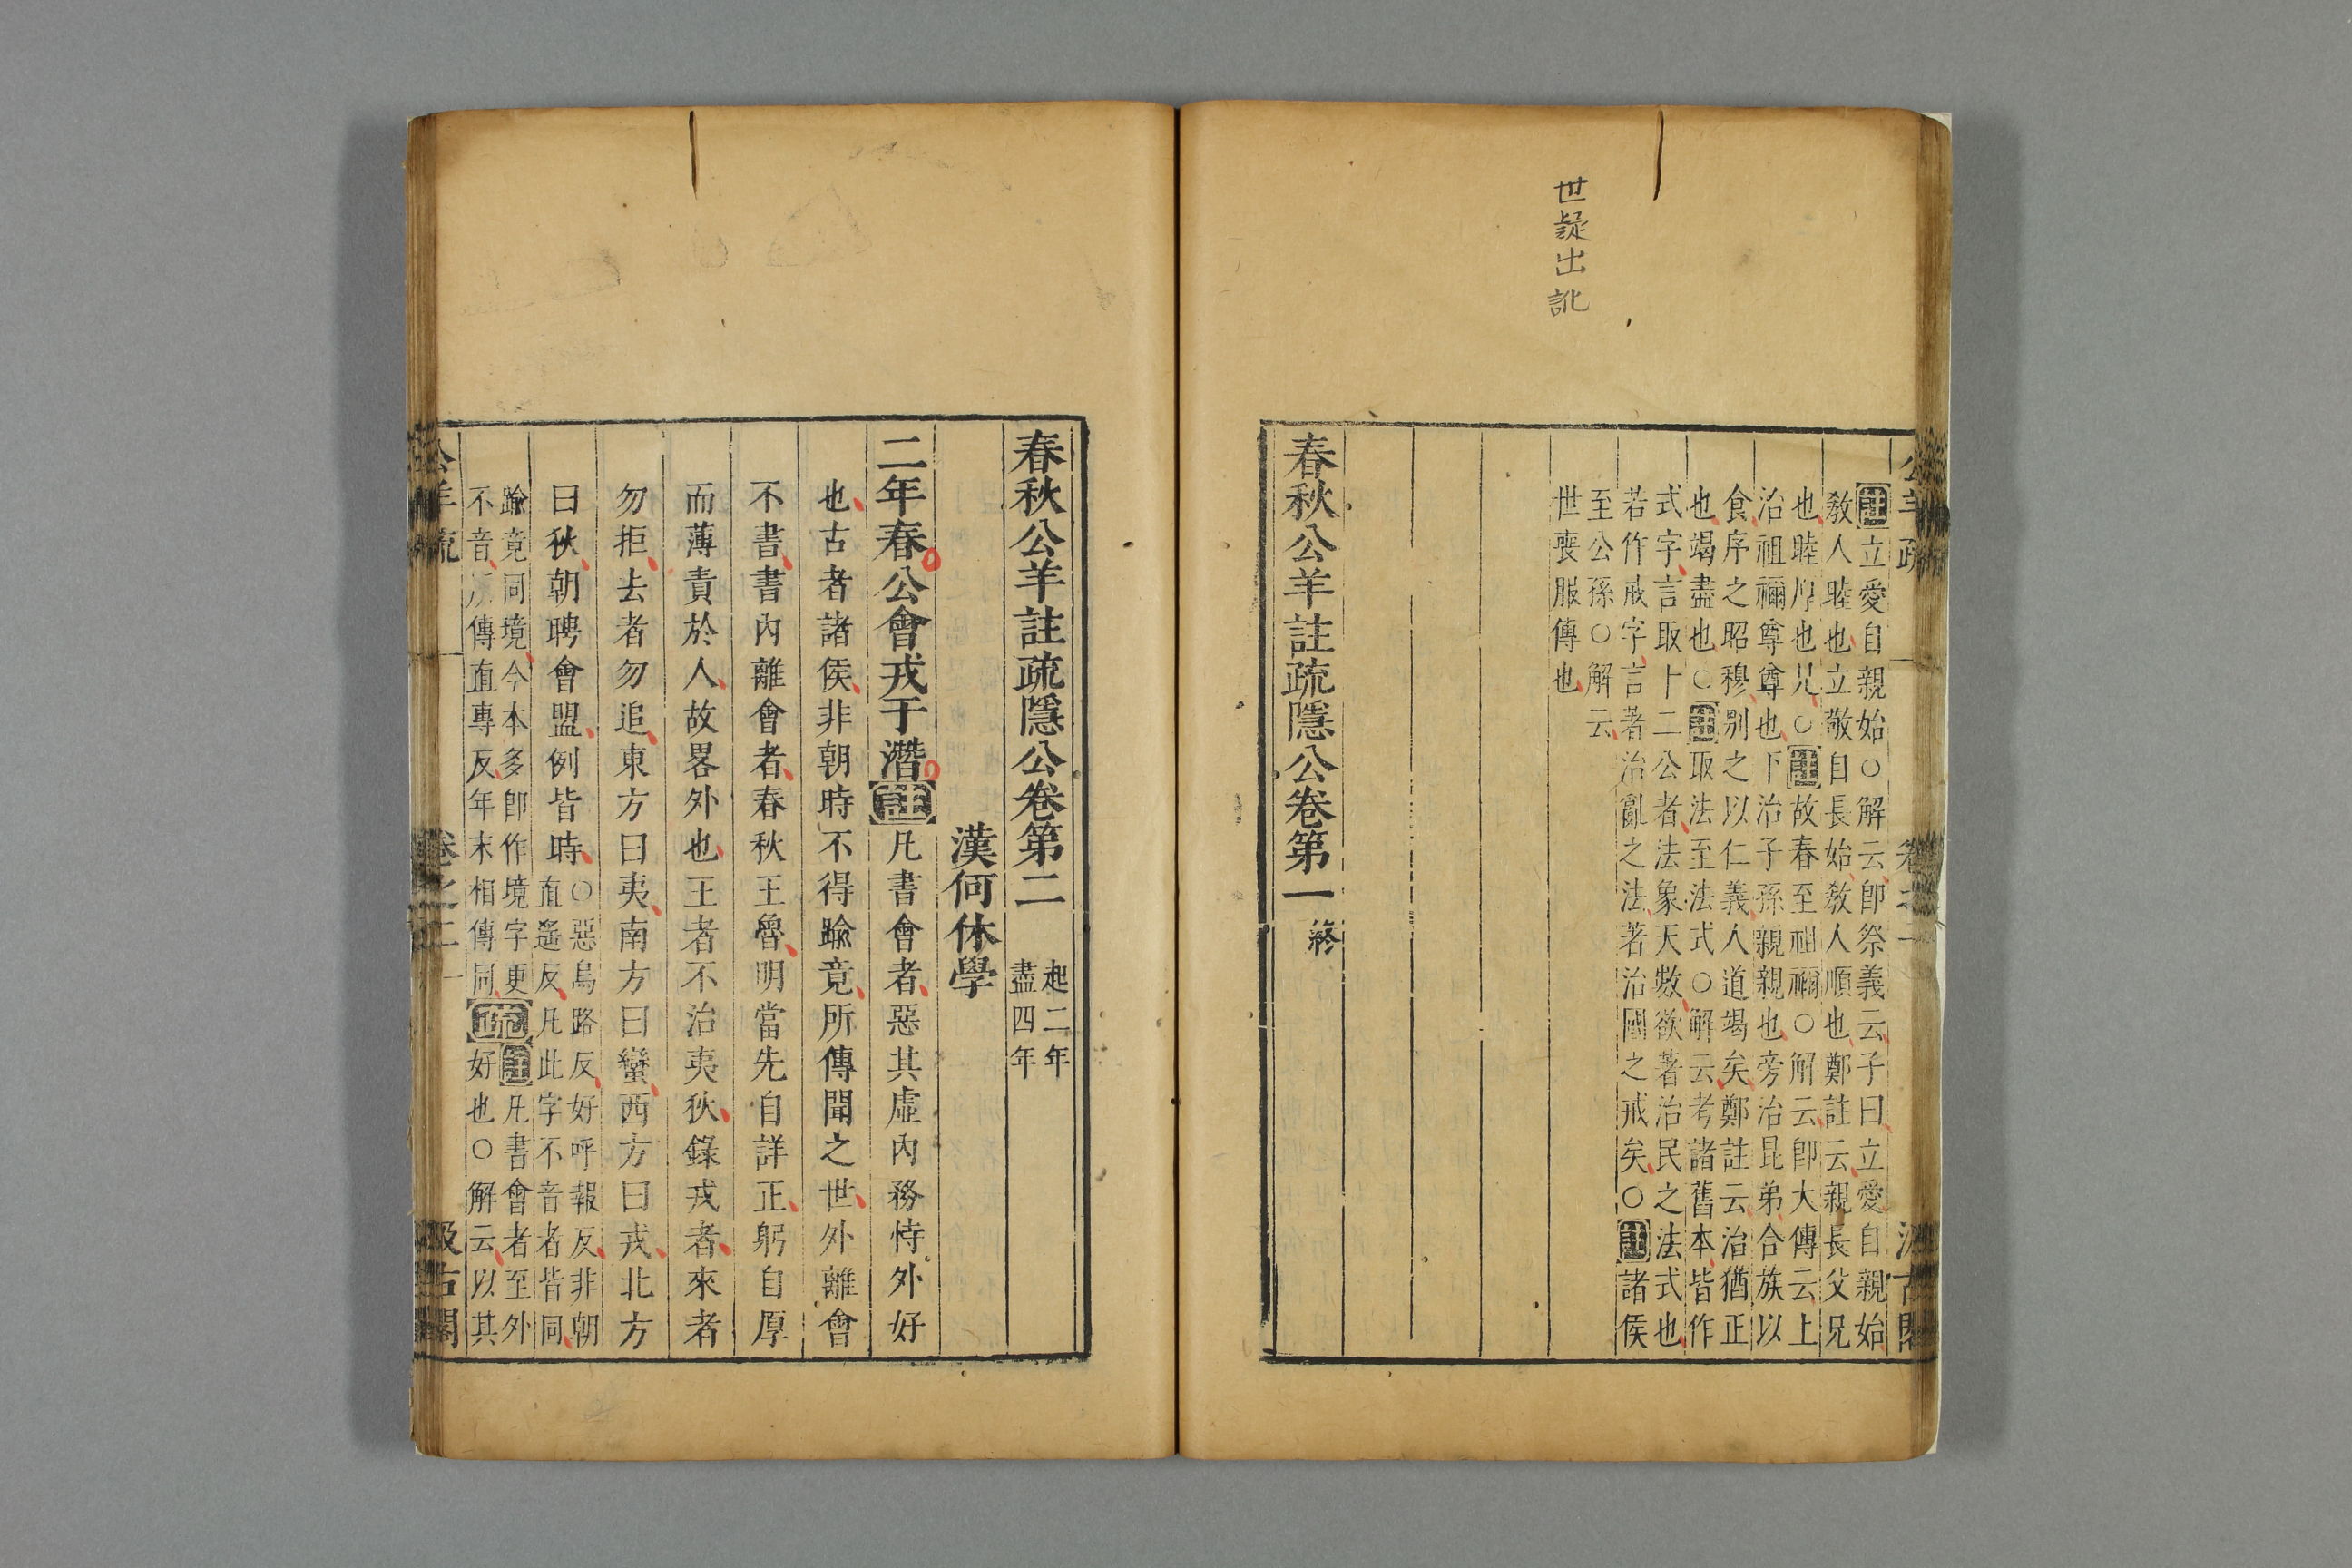 世疑出訛
註立愛自親始○解云卽祭義云子曰立愛自親始
敎人睦也立敬自長始敎人順也鄭註云親長父兄
也睦厚也○註故春至祖禰○解云卽大傳云上
治祖禰尊尊也下治子孫親親也旁治昆弟合族以
食序之昭穆別之以仁義人道竭矣鄭註云治猶正
也竭盡也○註取法至法式○解云考諸舊本皆作
式字言取十二公者法象天數欲著治民之法式也
若作戒字言著治亂之法著治國之戒矣○註諸侯
至公孫○解云
世喪服傳也
春秋公羊註疏隱公卷第一 終
春秋公羊註疏隱公卷第二 起二年
盡四年
漢何休學
二年春公會戎于潛註凡書會者惡其虛內務恃外好
也古者諸侯非朝時不得踰竟所傳聞之世外離會
不書書內離會者春秋王魯明當先自詳正躬自厚
而薄責於人故畧外也王者不治夷狄錄戎者來者
勿拒去者勿追東方曰夷南方曰蠻西方曰戎北方
曰狄朝聘會盟例皆時○惡烏路反好呼報反非朝
直遙反凡此字不音者皆同
踰竟同境今本多卽作境字更註凡書會者至外
不音傳直專反年末相傳同疏好也○解云以其
公羊疏 卷之二 一 汲古閣